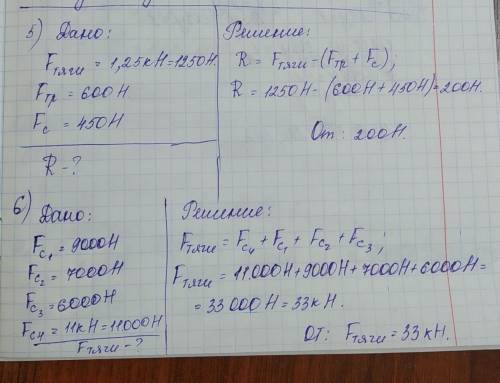 5) Дано:
Fтяги = 1,25кН=1250Н.
Fтр = 600Н
Fс = 450Н
R-?
Решение:
R = Fтяги-(Fтр + Fс);
R = 1250Н-(600Н+450Н)=200Н.
От: 200Н.
6) Дано:
Fс1 = 9000Н
Fс2 = 7000Н
Fс3 = 6000Н
Fс4 = 11кН=11000Н
Fтяги-?
Решение:
Fтяги = Fс4 + Fс1 + Fс2 + Fс3;
Fтяги = 11.000Н+9000Н+7000Н+6000Н=
= 33 000Н = 33кН.
От: Fтяги = 33кН.